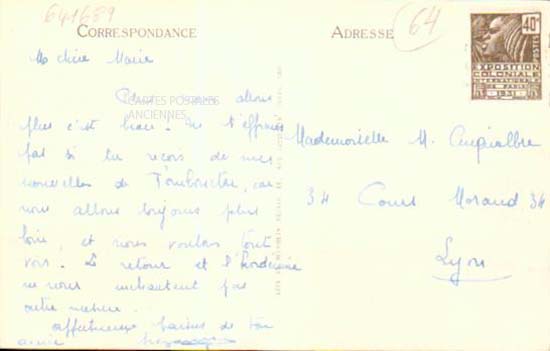 641689
64
CORRESPONDANCE
ADRESSE
40c
POSTES
EXPOSITION
COLONIALE
INTERNATIONALE
DE PARIS
1931
Ma chère Marie
Plus nous allons
CARTES POSTALES
ANCIENNES
plus c'est beau! Ne t'effraies
pas si tu reçois de mes
nouvelles de Tombouctou, car
nous allons toujours plus
loin, et nous voulons tout
voir. Le retour et l'Ardèche
ne nous enchantent pas
outre mesure.
affectueux baisers de ton
amie
Mademoiselle M.
34 Cours Morand 34
Lyon